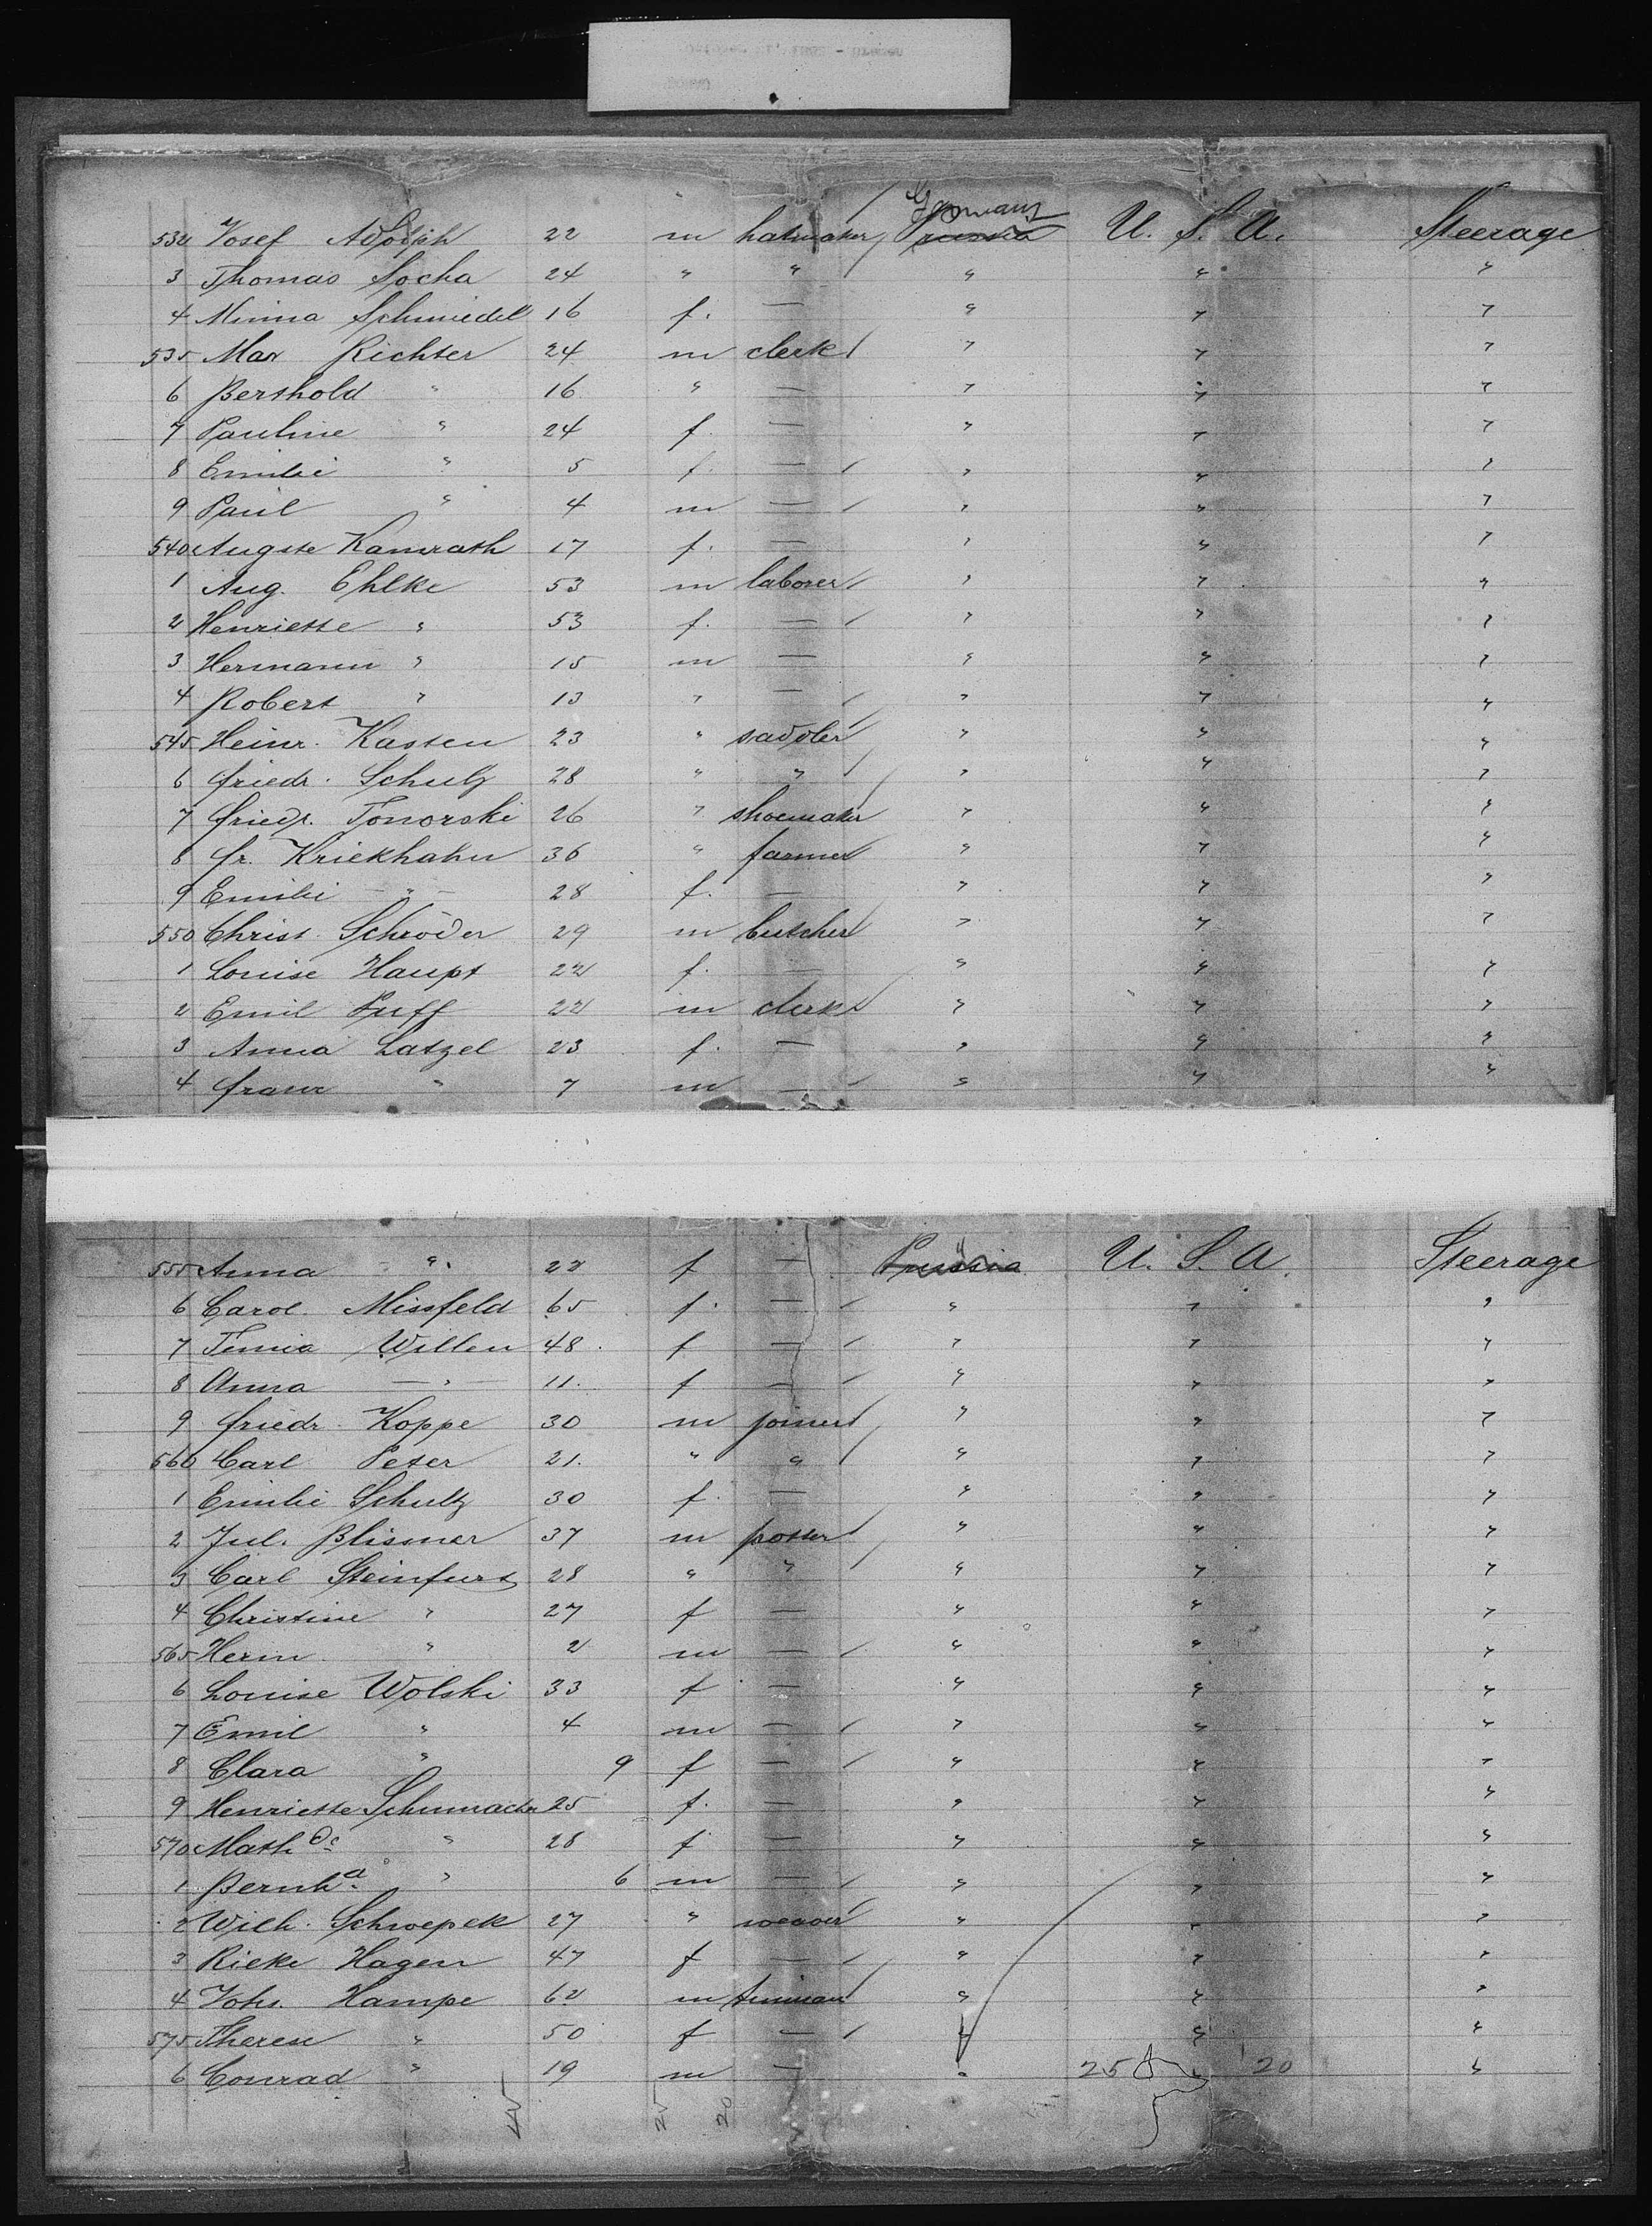 Germany
532 Josef Adolph 22 m hatmaker Prussia U. S. A. Steerage
3 Thomas Socha 24 " " " " "
4 Minna Schmiedel 16 f. — " " "
535 Max Richter 24 m clerk " " "
6 Berthold " 16 " — " " "
7 Pauline " 24 f. — " " "
8 Emilie " 5 f. — " " "
9 Paul " 4 m — " " "
540 Auguste Kamrath 17 f. — " " "
1 Aug. Ehlke 53 m laborer " " "
2 Henriette " 53 f. — " " "
3 Hermann " 15 m — " " "
4 Robert " 13 " — " " "
545 Heinr. Kasten 23 " saddler " " "
6 Friedr. Schulz 28 " " " " "
7 Friedr. Tonorski 26 " shoemaker " " "
8 Fr. Kriekhahn 36 " farmer " " "
9 Emilie — " — 28 f. — " " "
550 Christ. Schröder 29 m butcher " " "
1 Louise Haupt 22 f. — " " "
2 Emil Puff 22 m clerk " " "
3 Anna Latzel 23 f. — " " "
4 Franz " 7 m — " " "
555 Anna " 22 f — Prussia U. S. A. Steerage
6 Carol. Missfeld 65 f. — " " "
7 Willen 48 f — " " "
8 Anna — " — 11 f — " " "
9 Friedr. Koppe 30 m joiner " " "
560 Carl Peter 21. " " " " "
1 Emilie Schultz 30 f. — " " "
2 Jul. Blismer 37 m potter " " "
3 Carl Steinfurt 28 " " " " "
4 Christine " 27 f — " " "
565 Herm. " 2 m — " " "
6 Louise Wolski 33 f — " " "
7 Emil " 4 m — " " "
8 Clara " 9 f — " " "
9 Henriette Schumacher 25 f. — " " "
570 Mathde " 28 f — " " "
1 Bernhd " 6 m — " " "
2 Wilh. Schwepek 27 " weaver " " "
3 Rieke Hagen 47 f — " " "
4 Johs. Hampe 62 m tinman " " "
575 Therese " 50 f — " " "
6 Conrad " 19 m — " 25 " 20 "
25 20